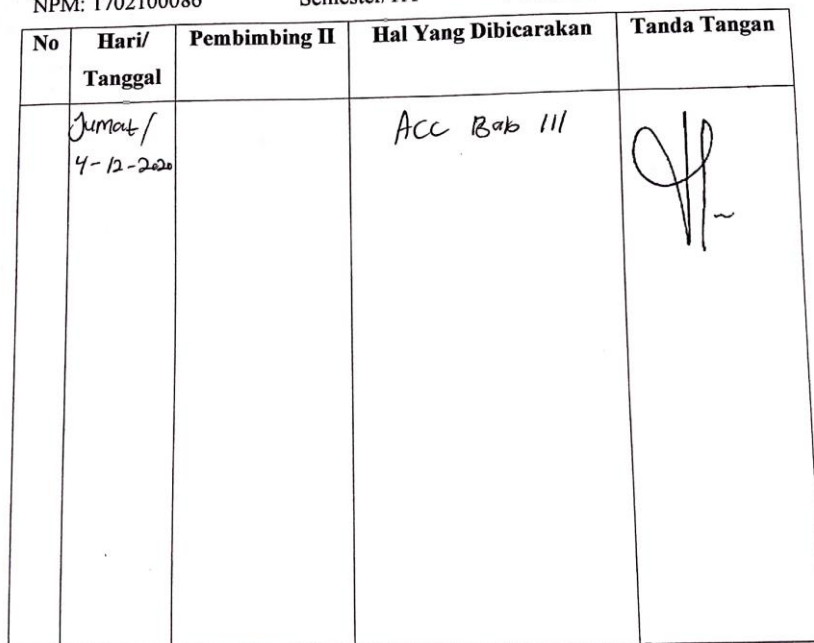 NPM: 1702100086
No Hari/ Tanggal Pembimbing II Hal Yang Dibicarakan Tanda Tangan
Jumat/ Acc Bab III
4-12-2020